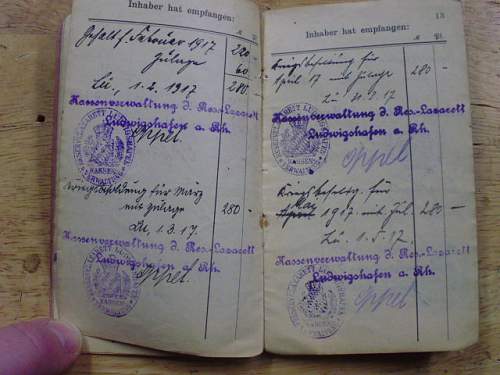 Inhaber hat empfangen:
M Pf.
Gehalt f. Februar 1917 220
Zulage 60
Lu, 1.2.1917 280.
Kassenverwaltung d. Res-Lazarett
Ludwigshafen a. Rh.
Oppel.
für März
mit Zulage 280
Lu, 1.3.17.
Kassenverwaltung d. Res-Lazarett
Ludwigshafen a. Rh.
Oppel.
13
Inhaber hat empfangen:
M Pf.
für
April 17 mit Zulage 280
Kassenverwaltung d. Res-Lazarett
Ludwigshafen a. Rh.
Oppel
für
Mai
April 1917 mit Zul. 280
Lu. 1.5.17.
Kassenverwaltung d. Res-Lazarett
Ludwigshafen a. Rh.
Oppel